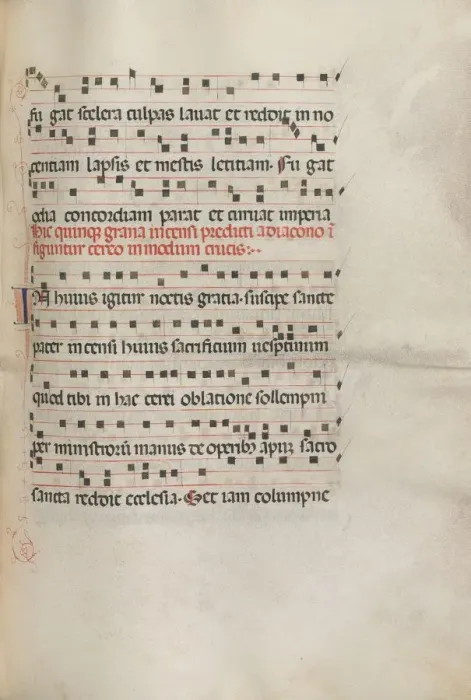 fu gat scelera culpas lauat et reddit in no
centiam lapsis et mestis letitiam. Fu gat
odia concordiam parat et curuat imperia
Hic quinqȝ grana incensi predicti a diacono ī
figuntur cereo in modum crucis:
In huius igitur noctis gratia. suscipe sancte
pater incensi huius sacrificium uesptinum
quod tibi in hac cerei oblatione sollempni
per ministroꝝ manus de operibȝ apuȝ sacro
sancta reddit ecclesia. Set iam columpne